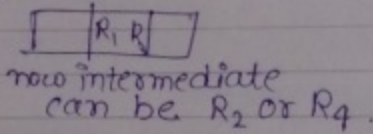 R₁ R
now intermediate
can be R₂ or R₄